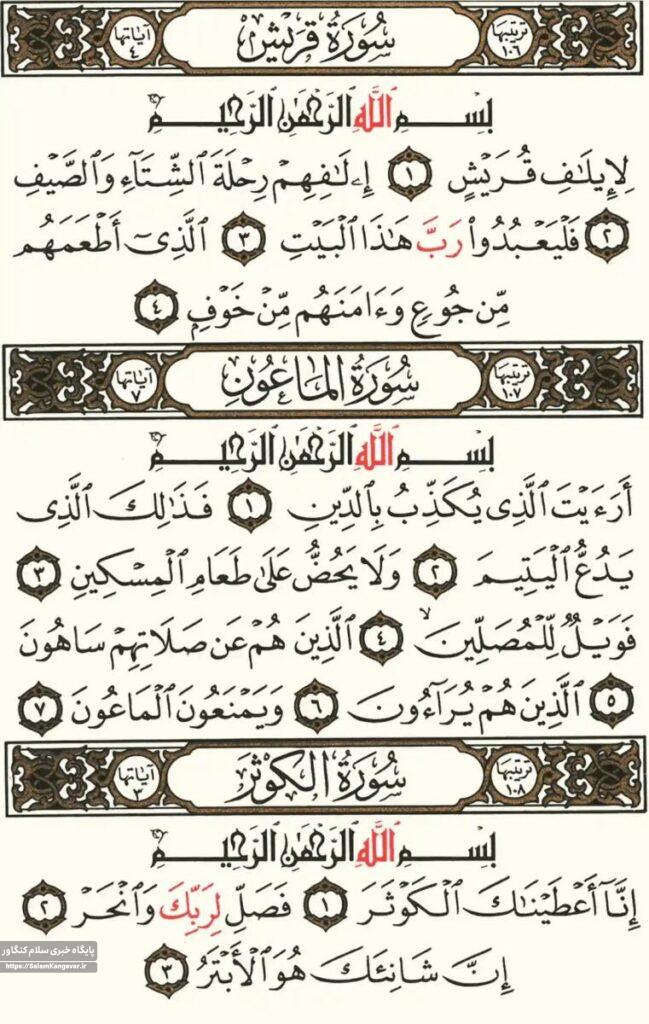 ترتيبها ١٠٦ سُورَةُ قُرَيْشٍ آياتها ٤
بِسْمِ اللَّهِ الرَّحْمَٰنِ الرَّحِيمِ
لِإِيلَٰفِ قُرَيْشٍ ١ إِۦلَٰفِهِمْ رِحْلَةَ ٱلشِّتَآءِ وَٱلصَّيْفِ
٢ فَلْيَعْبُدُوا۟ رَبَّ هَٰذَا ٱلْبَيْتِ ٣ ٱلَّذِىٓ أَطْعَمَهُم
مِّن جُوعٍ وَءَامَنَهُم مِّنْ خَوْفٍ ٤
ترتيبها ١٠٧ سُورَةُ المَاعُونِ آياتها ٧
بِسْمِ اللَّهِ الرَّحْمَٰنِ الرَّحِيمِ
أَرَءَيْتَ ٱلَّذِى يُكَذِّبُ بِٱلدِّينِ ١ فَذَٰلِكَ ٱلَّذِى
يَدُعُّ ٱلْيَتِيمَ ٢ وَلَا يَحُضُّ عَلَىٰ طَعَامِ ٱلْمِسْكِينِ ٣
فَوَيْلٌ لِّلْمُصَلِّينَ ۙ ٤ ٱلَّذِينَ هُمْ عَن صَلَاتِهِمْ سَاهُونَ
٥ ٱلَّذِينَ هُمْ يُرَآءُونَ ٦ وَيَمْنَعُونَ ٱلْمَاعُونَ ٧
ترتيبها ١٠٨ سُورَةُ الكَوْثَرِ آياتها ٣
بِسْمِ اللَّهِ الرَّحْمَٰنِ الرَّحِيمِ
إِنَّآ أَعْطَيْنَٰكَ ٱلْكَوْثَرَ ١ فَصَلِّ لِرَبِّكَ وَٱنْحَرْ ٢
إِنَّ شَانِئَكَ هُوَ ٱلْأَبْتَرُ ٣
پایگاه خبری سلام کنگاور
https://SalamKangavar.ir